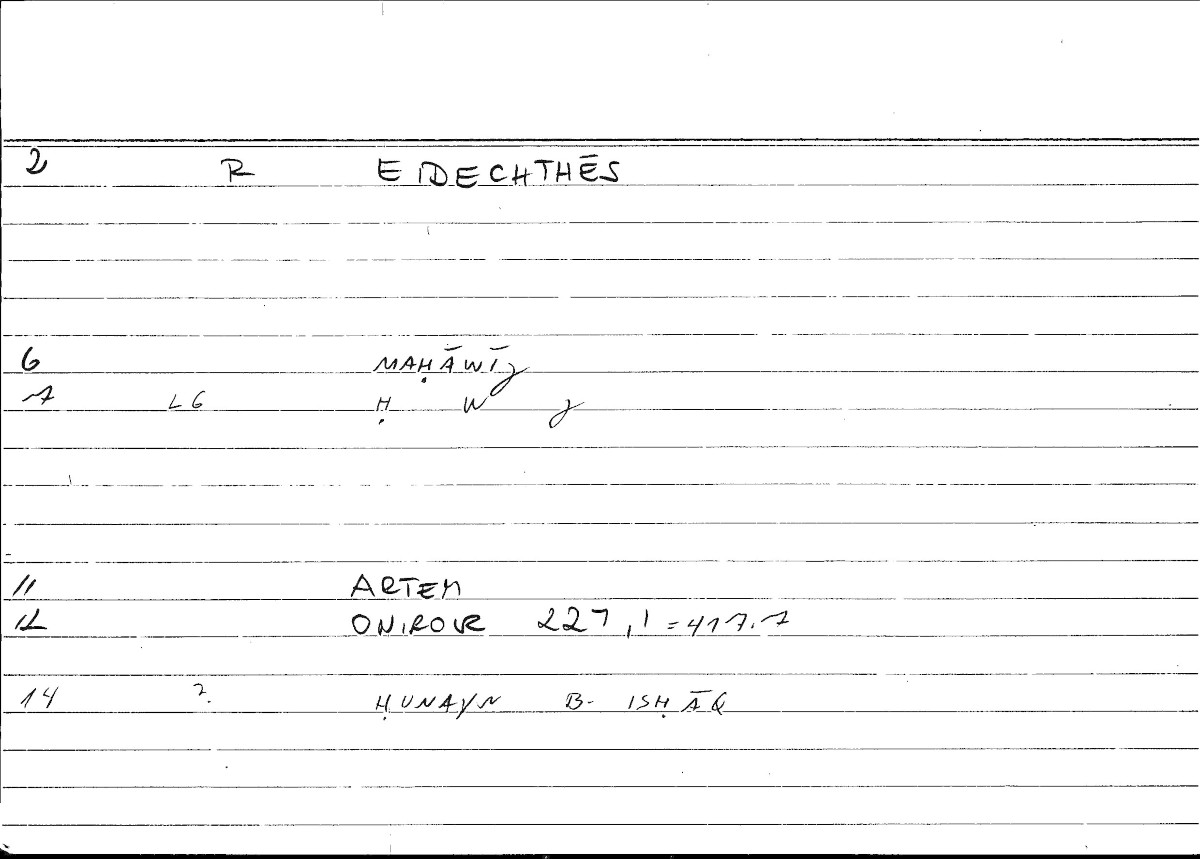 2 R EIDECHTHĒS
6 MAḤĀWĪJ
7 LG Ḥ W J
11 ARTEM
12 ONIROCR 227,1 = 417.7
14 ? ḤUNAYN B- ISḤĀQ